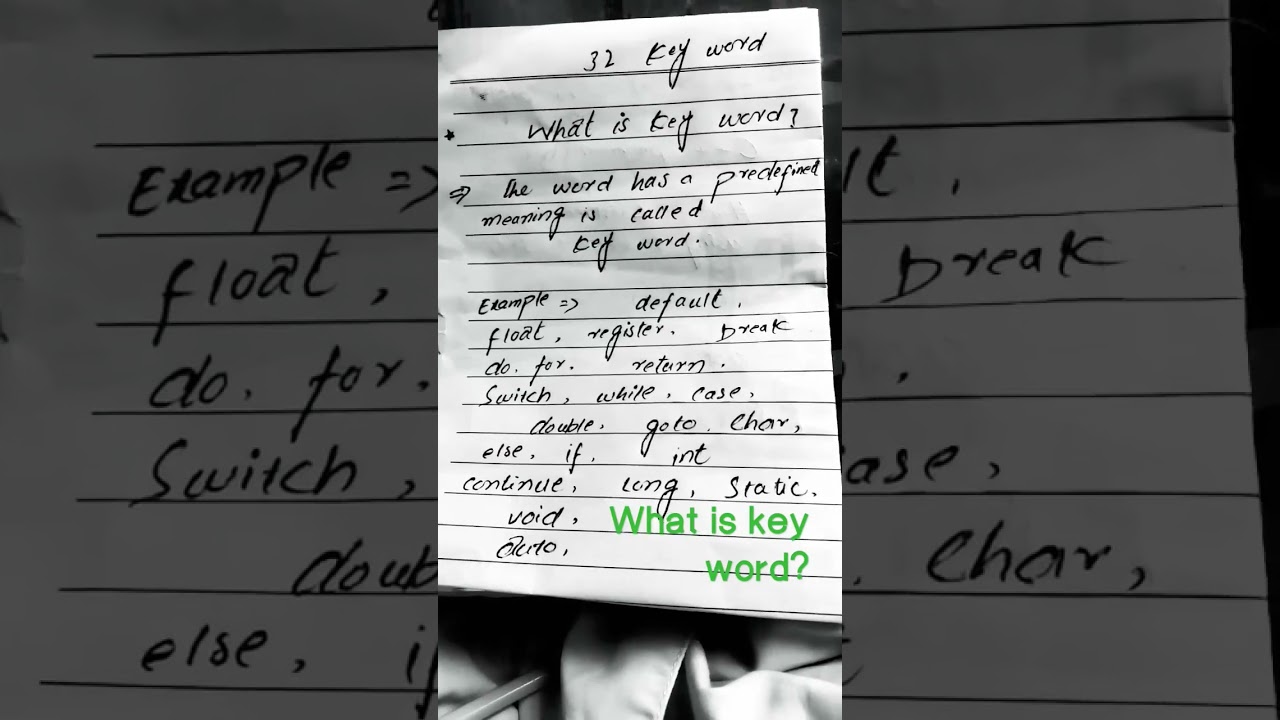 32 Key word
* What is key word?
=> the word has a predefined
meaning is called
key word.
Example => default,
float, register. break
do. for. return.
Switch, while, case,
double, goto. Char,
else, if, int
continue, long, Static,
void,
auto,
What is key
word?